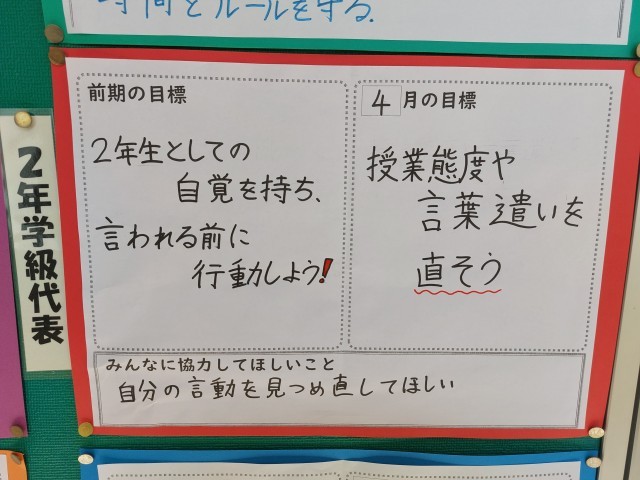 時間とルールを守る.
2年学級代表
前期の目標
2年生としての
自覚を持ち、
言われる前に
行動しよう!
4月の目標
授業態度や
言葉遣いを
直そう
みんなに協力してほしいこと
自分の言動を見つめ直してほしい